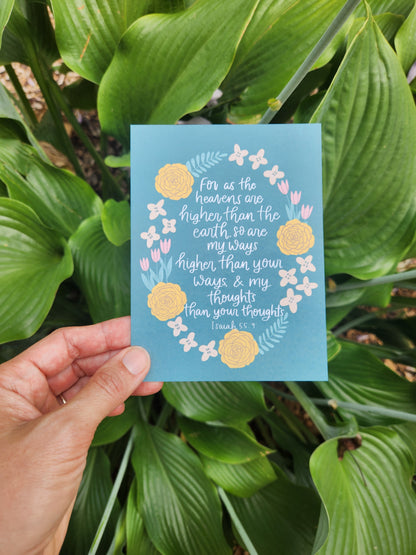 For as the
heavens are
higher than the
earth, so are
my ways
higher than your
ways, & my
thoughts
than your thoughts
Isaiah 55:9